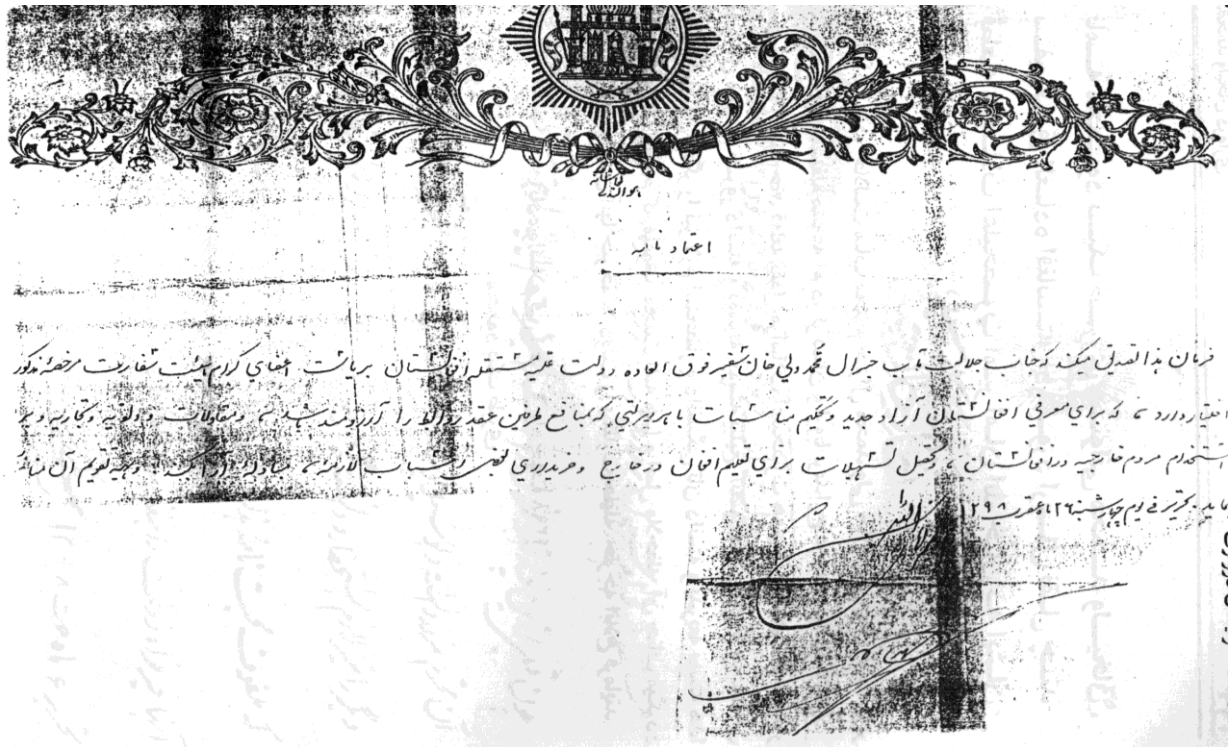 هوالله
اعتماد نامه
فرمان هذا تصدیق میکند که جناب جلالت مآب جنرال محمد ولی خان سفیر فوق العاده دولت علیه مستقله افغانستان بریاست اعضای کرام هیئت سفارت مرخصهٔ مذکور
اختیار دارد، که برای معرفی افغانستان آزاد جدید وتحکیم مناسبات با هر دولتی که بمنافع طرفین عقد روابط را آرزومند شد، ومقاولات ودولتیه وتجاریه وبر
استخدام مردم خارجیه در افغانستان، وتحصیل تسهیلات برای تعلیم افغان در خارج وخریداری بعضی اسباب لازمه، وجهه تقویم آن
نماید. تحریر فی یوم چهارشنبه ۲۶ ماه عقرب ۱۲۹۸